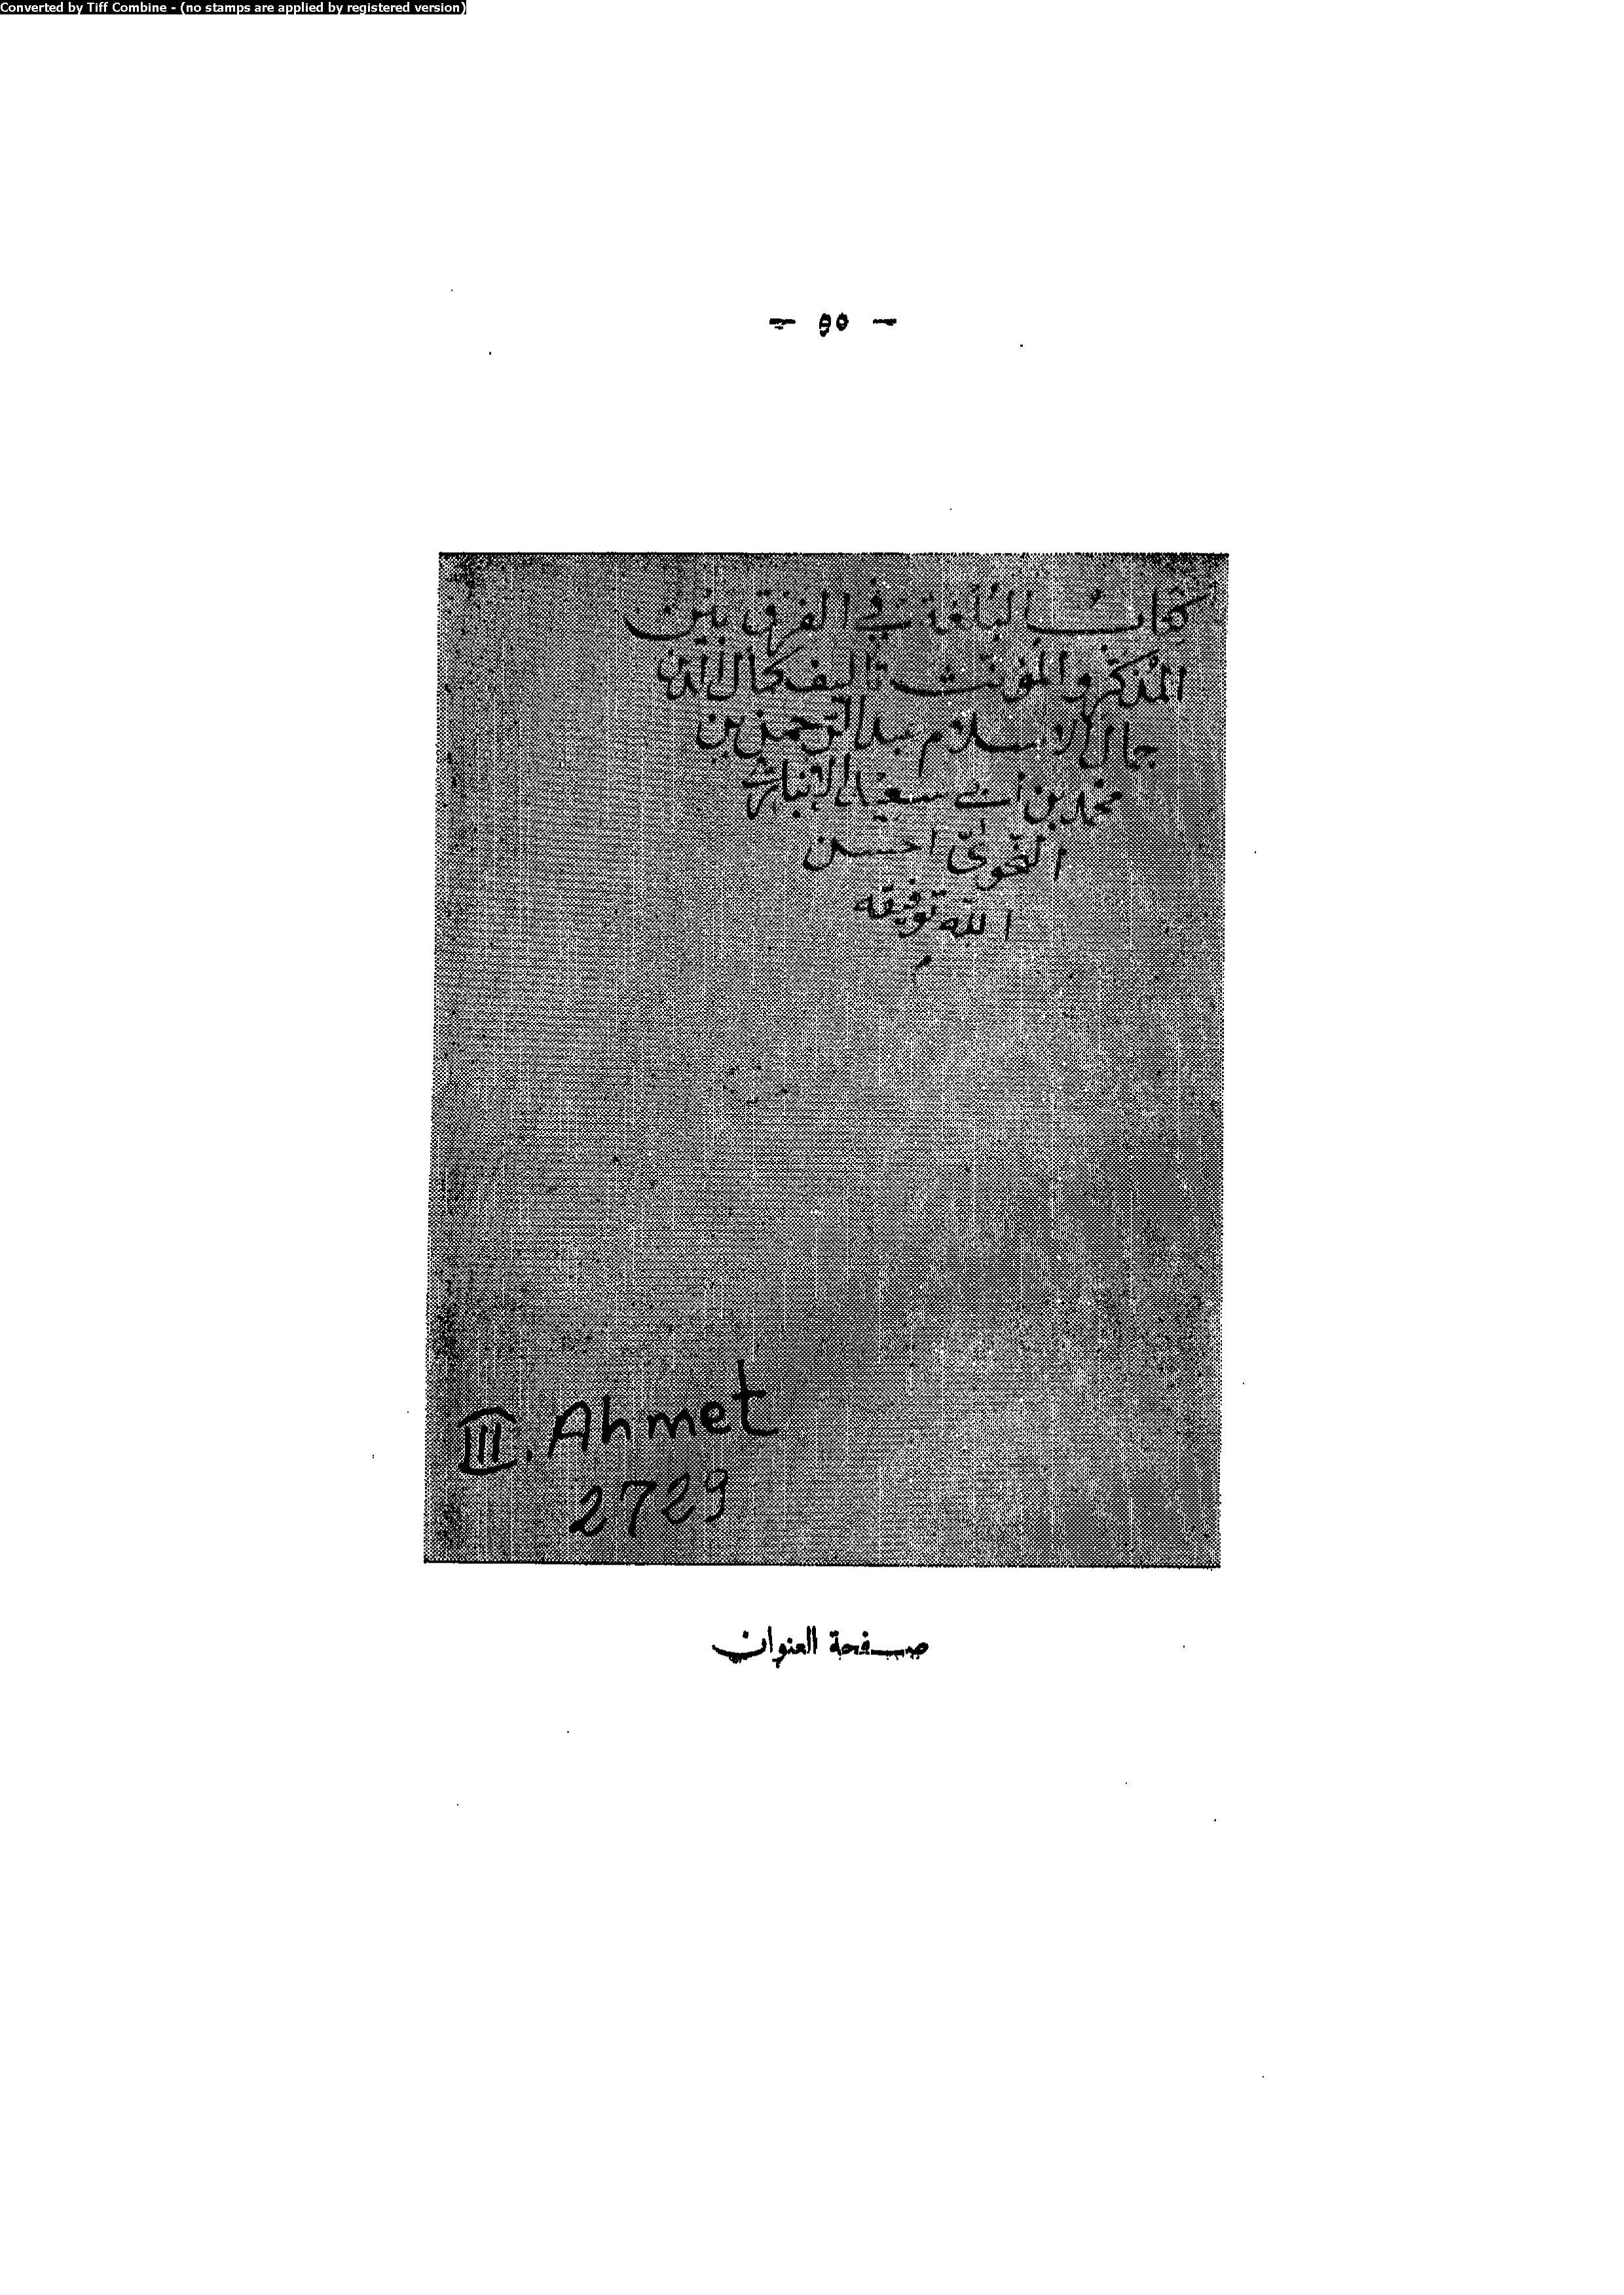 Converted by Tiff Combine - (no stamps are applied by registered version)
— ٥٥ —
كتاب البلغة في الفرق بين
المذكر والمؤنث تأليف كمال الدين
جمال الاسلام عبد الرحمن بن
محمد بن أبي سعيد الانباري
النحوي احسن
الله توفيقه
III. Ahmet
2729
صفحة العنوان